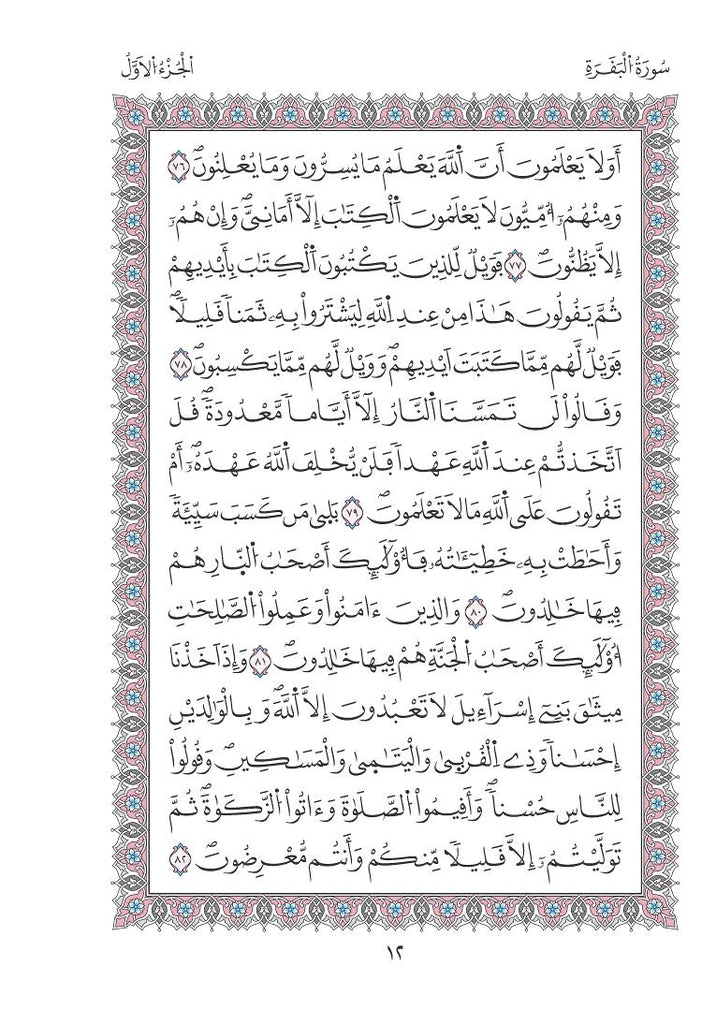 سُورَةُ الْبَقَرَةِ
الْجُزْءُ الْأَوَّلُ
أَوَلَا يَعْلَمُونَ أَنَّ اَللَّهَ يَعْلَمُ مَا يُسِرُّونَ وَمَا يُعْلِنُونَۖ ٧٦
وَمِنْهُمُۥٓ أُمِّيُّونَ لَا يَعْلَمُونَ اَلْكِتَٰبَ إِلَّآ أَمَانِيَّۖ وَإِنْ هُمُۥٓ
إِلَّا يَظُنُّونَۖ ٧٧ فَوَيْلٞ لِّلذِينَ يَكْتُبُونَ اَلْكِتَٰبَ بِأَيْدِيهِمْ
ثُمَّ يَقُولُونَ هَٰذَا مِنْ عِندِ اِللَّهِ لِيَشْتَرُواْ بِهِۦ ثَمَناٗ قَلِيلاٗۖ
فَوَيْلٞ لَّهُم مِّمَّا كَتَبَتَ اَيْدِيهِمْۖ وَوَيْلٞ لَّهُم مِّمَّا يَكْسِبُونَۖ ٧٨
وَقَالُواْ لَن تَمَسَّنَا اَلنَّارُ إِلَّآ أَيَّاماٗ مَّعْدُودَةٗۖ قُلَ
اَتَّخَذتُّمْ عِندَ اَللَّهِ عَهْداٗ فَلَنْ يُّخْلِفَ اَللَّهُ عَهْدَهُۥٓۖ أَمْ
تَقُولُونَ عَلَى اَللَّهِ مَا لَا تَعْلَمُونَۖ ٧٩ بَلَىٰ مَن كَسَبَ سَيِّئَةٗ
وَأَحَٰطَتْ بِهِۦ خَطِيٓـَٰٔتُهُۥ فَأُوْلَٰٓئِكَ أَصْحَٰبُ اُلنّ۪ارِ هُمْ
فِيهَا خَٰلِدُونَۖ ٨٠ وَالذِينَ ءَامَنُواْ وَعَمِلُواْ اُلصَّٰلِحَٰتِ
أُوْلَٰٓئِكَ أَصْحَٰبُ اُلْجَنَّةِ هُمْ فِيهَا خَٰلِدُونَۖ ٨١ وَإِذَ اَخَذْنَا
مِيثَٰقَ بَنِےٓ إِسْرَآءِيلَ لَا تَعْبُدُونَ إِلَّا اَللَّهَۖ وَبِالْوَٰلِدَيْنِ
إِحْسَٰناٗ وَذِے اِلْقُرْب۪ىٰ وَالْيَتَٰم۪ىٰ وَالْمَسَٰكِينِۖ وَقُولُواْ
لِلنَّاسِ حُسْناٗۖ وَأَقِيمُواْ اُلصَّلَوٰةَ وَءَاتُواْ اُلزَّكَوٰةَۖ ثُمَّ
تَوَلَّيْتُمُۥٓ إِلَّا قَلِيلاٗ مِّنكُمْ وَأَنتُم مُّعْرِضُونَۖ ٨٢
١٢